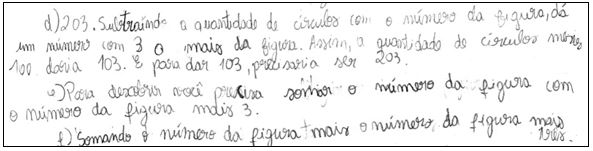 d) 203. Subtraindo a quantidade de circulos com o número da figura, dá
um número com 3 a mais da figura. Assim, a quantidade de circulos menos
100 daria 103. E para dar 103, precisaria ser 203.
e) Para descobrir você precisa somar o número da figura com
o número da figura mais 3.
f) Somando o número da figura + mais o número da figura mais
três.